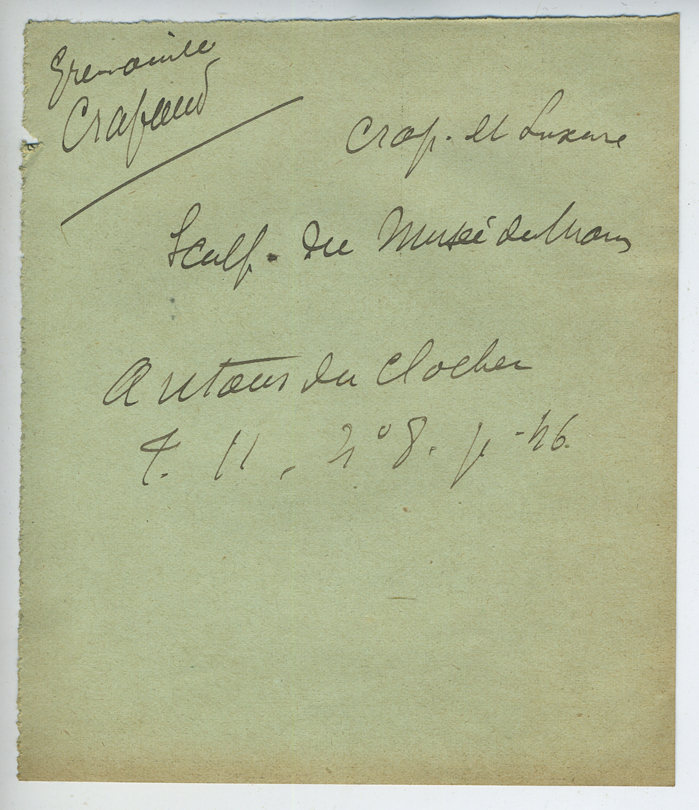 Grenouille
Crapaud
Crap. et Luxure
Sculp. du Musée du Mans
Autour du Clocher
T. 11, n° 8. p. 46.